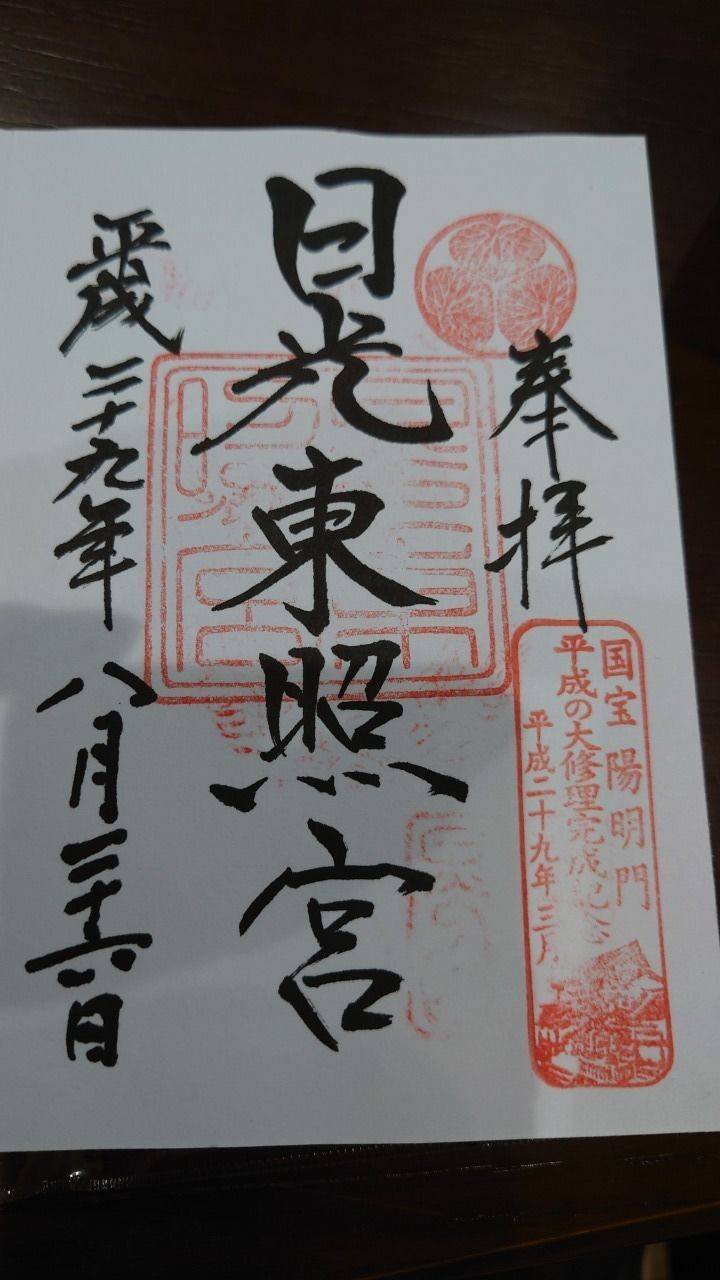 奉拝
国宝 陽明門
平成の大修理完成記念
平成二十九年三月
日光東照宮
平成二十九年八月二十六日